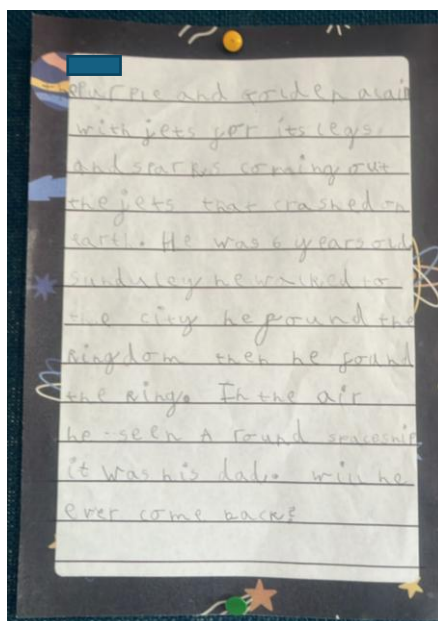 the Purple and golden alain
with jets for its legs.
and sparks coming out
the jets that crashed on
earth. He was 6 years old
sunduley he walked to
the city he found the
kingdom then he found
the king. In the air
he seen A round spaceship
it was his dad. will he
ever come back?